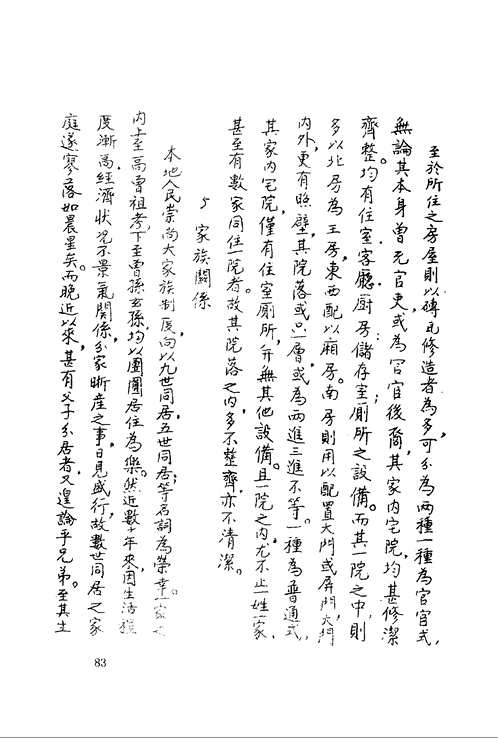 至於所住之房屋則以磚瓦修造者為多可分為兩種一種為官宦式，
無論其本身曾无官吏，或為官宦後裔，其家內宅院，均甚修潔
齊整，均有住室、客廳、厨房、儲存室、厠所之設備。而其一院之中，則
多以北房為王房，東西配以廂房。南房則用以配置大門或屏門，大門
內外，更有照壁，其院落或只一層，或為兩進三進不等。一種為普通式，
其家內宅院，僅有住室厠所，並無其他設備。且一院之內，尤不止一姓一家，
甚至有數家同住一院者。故其院落之內，多不整齊，亦不清潔。
5 家族關係
本地人民崇尚大家族制度向以九世同居，五世同居，等名詞為榮幸。一家之
內上至高曾祖考，下至曾孫玄孫，均以團圞居住為樂。然近數十年來，因生活
度漸高，經濟狀况不景氣關係，分家晰產之事，日見盛行，故數世同居之家
庭遂寥落如晨星矣。而晚近以來，甚有父子分居者，又遑論乎兄弟。至其土
83